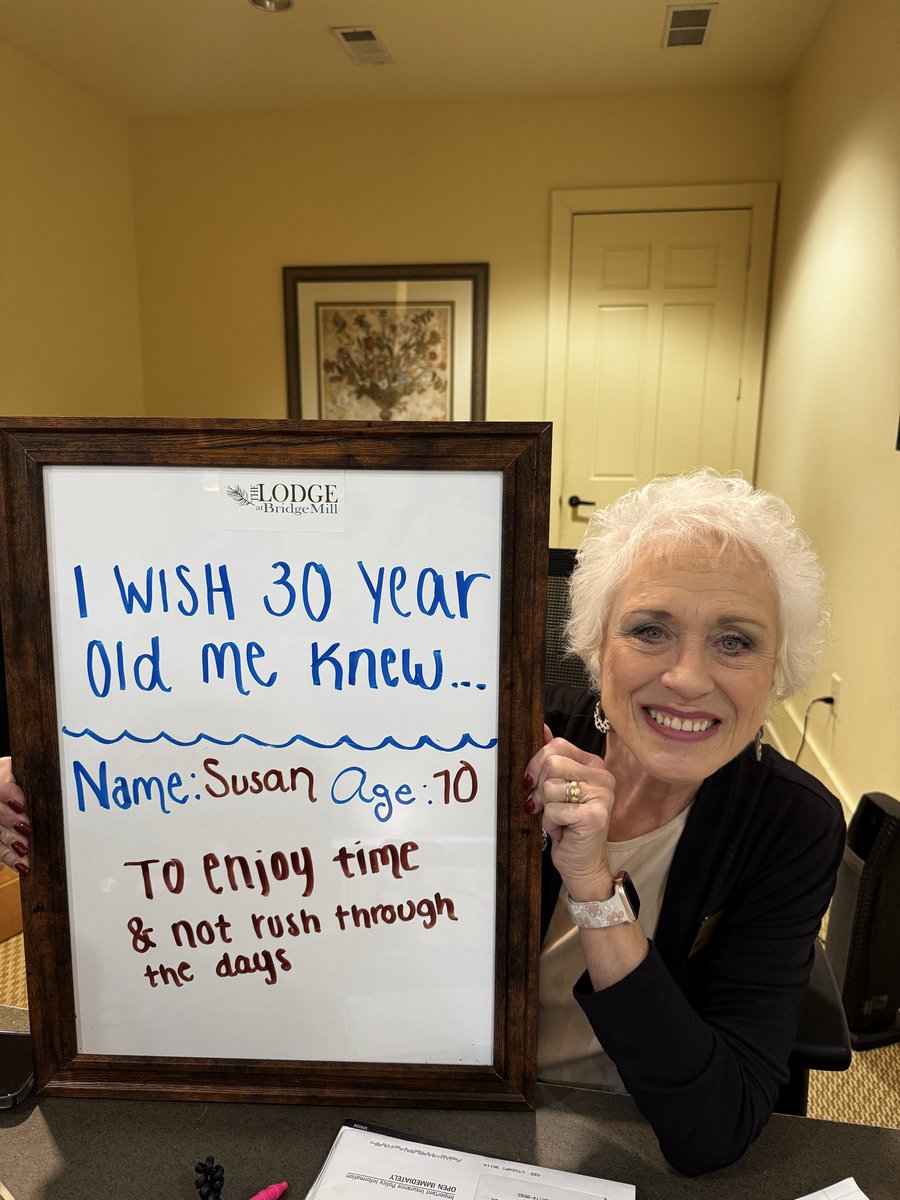 THE LODGE
at BridgeMill
I WISH 30 Year
Old me Knew...
Name: Susan Age: 70
To enjoy time
& not rush through
the days
Important Insurance Policy Information
OPEN IMMEDIATELY